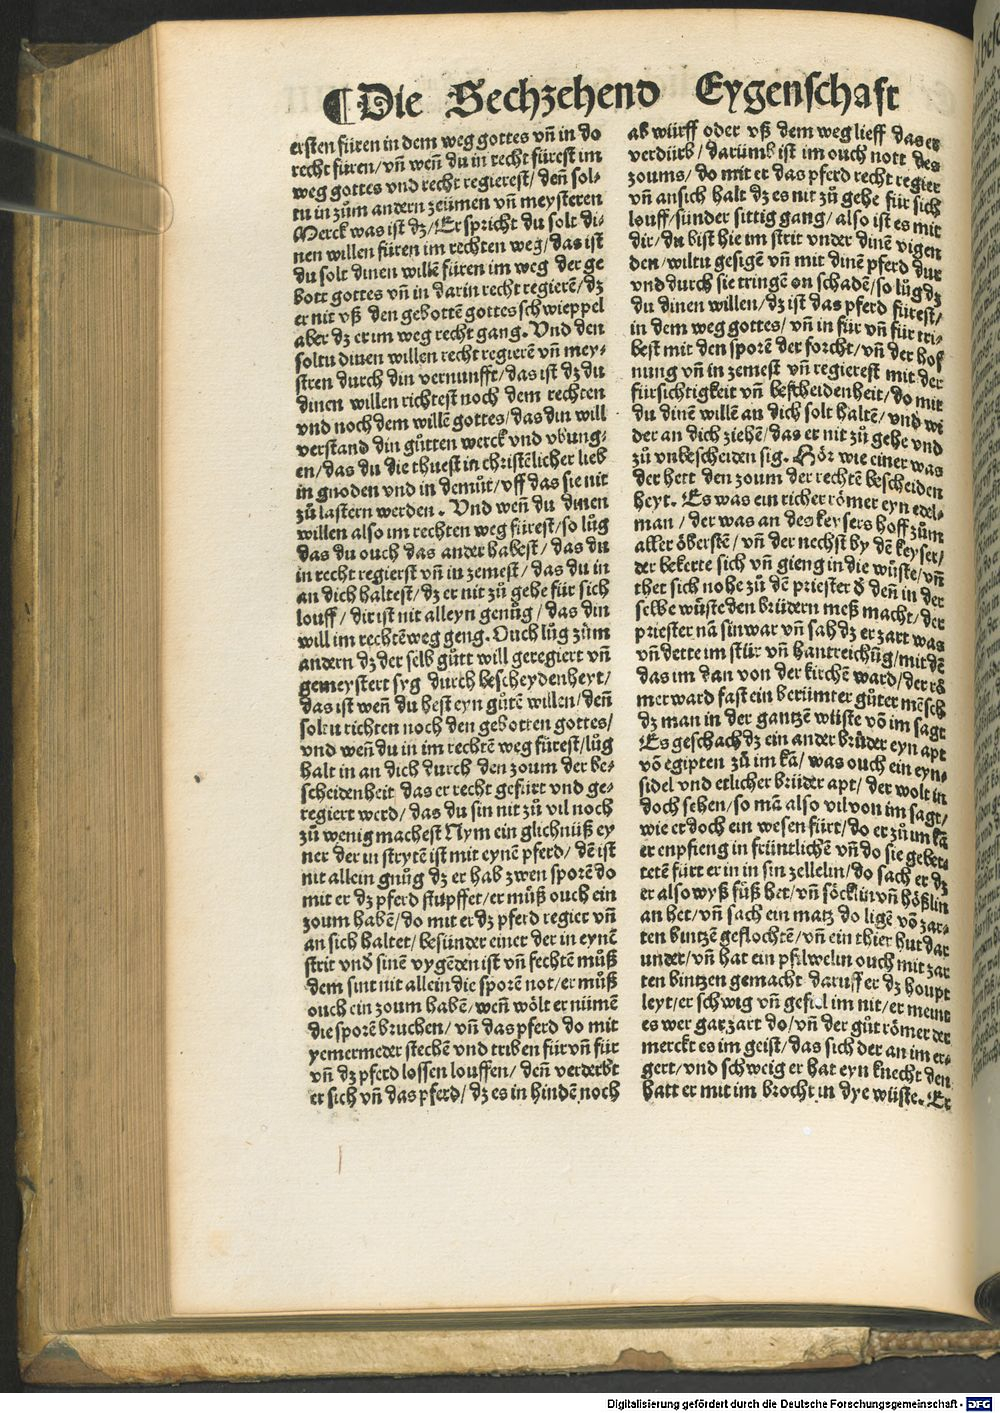 ¶ Die Sechzehend Eygenschaft
ersten füren in dem weg gottes vñ in do
recht füren/ vñ weñ du in recht fürest im
weg gottes vnd recht regierest/ deñ sol-
tu in zům andern zeümen vñ meysteren
Merck was ist dz/ Er spricht du solt di-
nen willen füren im rechten weg/ das ist
du solt dinen willē füren im weg der ge
bott gottes vñ in darin recht regierē/ dz
er nit vß den gebottē gottes schwieppel
aber dz er im weg recht gang. Vnd den
soltu dinen willen recht regierē vñ mey-
stren durch din vernunfft/ das ist dz du
dinen willen richtest noch dem rechten
vnd noch dem willē gottes/ das din will
verstand din gůtten werck vnd vbung-
en/ das du die thuest in christēlicher lieb
in gnoden vnd in demůt/ vff das sie nit
zů lastern werden. Vnd weñ du dinen
willen also im rechten weg fürest/ so lůg
das du ouch das ander habest/ das du
in recht regierst vñ in zemest/ das du in
an dich haltest/ dz er nit zů gehe für sich
louff/ dir ist nit alleyn genůg/ das din
will im rechtē weg geng. Ouch lůg zům
andern dz der selb gůtt will geregiert vñ
gemeystert syg durch bescheydenheyt/
das ist weñ du hest eyn gůtē willen/ deñ
soltu richten noch den gebotten gottes/
vnd weñ du in im rechtē weg fürest/ lůg
halt in an dich durch den zoum der be-
scheidenheit das er recht gefürt vnd ge-
regiert werd/ das du sin nit zů vil noch
zů wenig machest Nym ein glichnüß ey
ner der in strytē ist mit eynē pferd/ dē ist
nit allein gnůg dz er hab zwen sporē do
mit er dz pferd stupffet/ er můß ouch ein
zoum habē/ do mit er dz pferd regier vñ
an sich haltet/ besünder einer der in eynē
strit vnd sinē vygēden ist vñ fechtē můß
dem sint nit allein die sporē not/ er můß
ouch ein zoum habē/ weñ wölt er nümē
die sporē bruchen/ vñ das pferd do mit
yemermeder stechē vnd triben für vñ für
vñ dz pferd lossen louffen/ deñ verderbt
er sich vñ das pferd/ dz es in hindē noch
ab würff oder vß dem weg lieff das es
verdürb/ darümb ist im ouch nott des
zoums/ do mit er das pferd recht regier
vñ an sich halt dz es nit zů gehe für sich
louff/ sunder sittig gang/ also ist es mit
dir/ du bist hie im strit vnder dinē vigen
den/ wiltu gesigen vñ mit dinē pferd dur
vnd durch sie tringē on schadē/ so lůg dz
du dinen willen/ dz ist das pferd fürest/
in dem weg gottes/ vñ in für vñ für tri-
best mit den sporē der forcht/ vñ der hof
nung vñ in zemest vñ regierest mit der
fürsichtigkeit vñ bescheidenheit/ do mit
du dinē willē an dich solt haltē/ vnd wi
der an dich ziehē/ das er nit zů gehe vnd
zů vnbescheiden sig. Hör wie einer was
der hett den zoum der rechtē bescheiden
heyt. Es was ein richer römer eyn edel-
man/ der was an des keysers hoff zům
aller öberstē/ vñ der nechst by dē keyser/
der bekerte sich vñ gieng in die wüste/ vñ
thet sich nohe zů dē priester d deñ in der
selbē wüste den brüdern meß macht/ der
priester nā sin war vñ sah dz er zart was
vñ dette im stür vñ hantreichüg/ mit dē
das im dan von der kirchē ward/ der rö
mer ward fast ein berümter gůter mēsch
dz man in der gantzē wüste vō im sagt
Es geschach dz ein ander brůder eyn apt
vō egipten zů im kā/ was ouch ein eyn-
sidel vnd etlicher brüder apt/ der wolt in
doch sehen/ so mā also vil von im sagt/
wie er doch ein wesen fürt/ do er zů im kā
er enpfieng in früntlichē vñ do sie gebet-
tetē fürt er in in sin zellelin/ do sach er dz
er also wyß füß het/ vñ söcklin vñ hößlin
an het/ vñ sach ein matz do ligē vō zar-
ten bintzē geflochtē/ vñ ein thier hut dar
under/ vñ hat ein pfilwelin ouch mit zar
ten bintzen gemacht daruff er dz houpt
leyt/ er schwig vñ gefiel im nit/ er meint
es wer gar zart do/ vñ der gůt römer der
merckt es im geist/ das sich der an im er-
gert/ vnd schweig er hat eyn knecht den
hatt er mit im brocht in dye wüste. Er
Digitalisierung gefördert durch die Deutsche Forschungsgemeinschaft - DFG